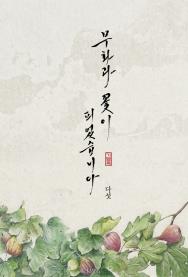 무화과 꽃이
피었습니다
다섯